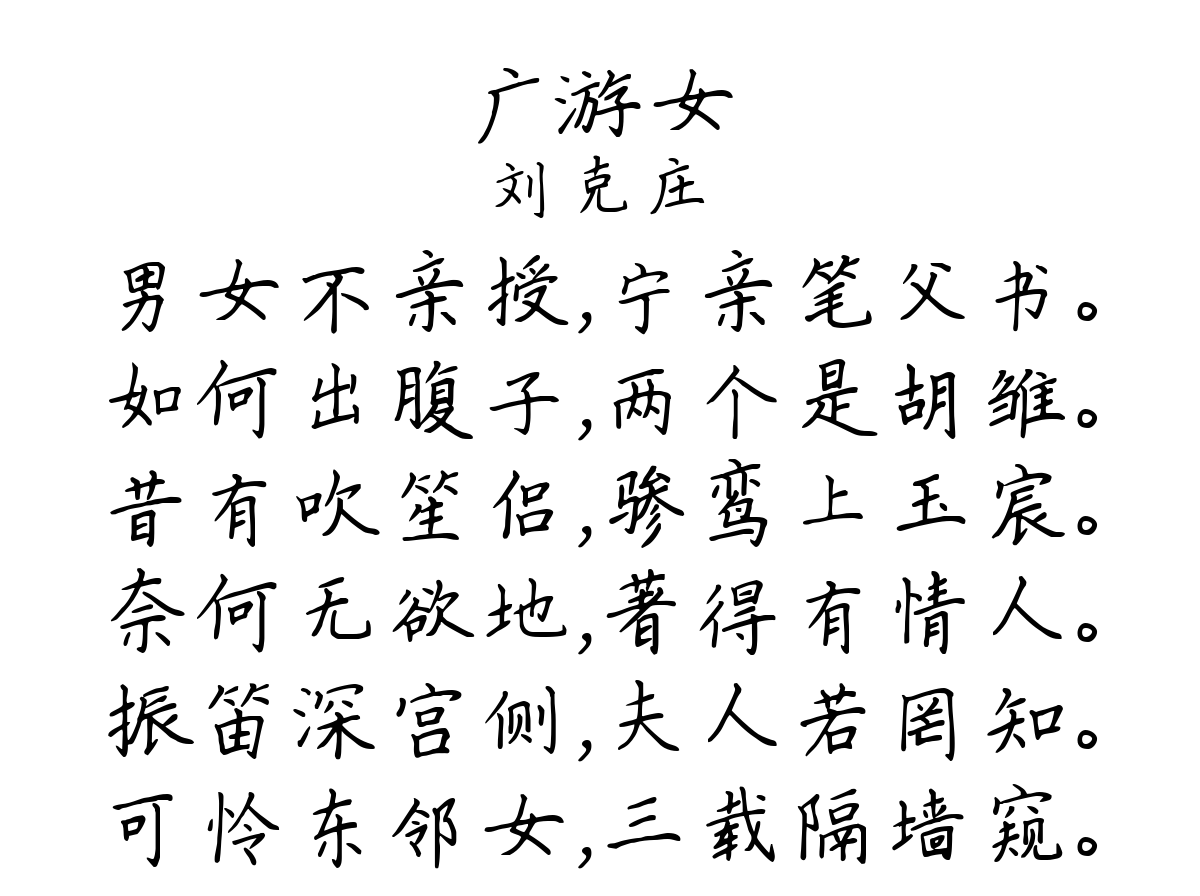 广游女
刘克庄
男女不亲授,宁亲笔父书。
如何出腹子,两个是胡雏。
昔有吹笙侣,骖鸾上玉宸。
奈何无欲地,著得有情人。
振笛深宫侧,夫人若罔知。
可怜东邻女,三载隔墙窥。